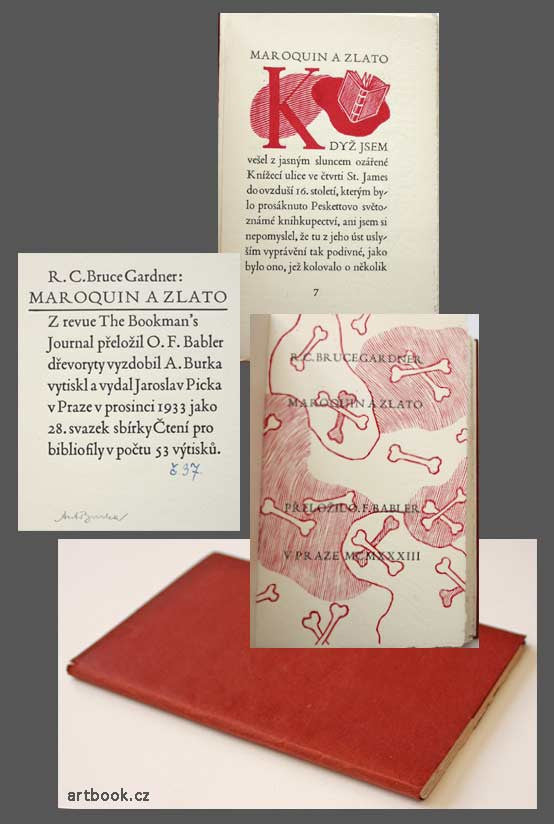 MAROQUIN A ZLATO
KDYŽ JSEM
vešel z jasným sluncem ozářené
Knížecí ulice ve čtvrti St. James
do ovzduší 16. století, kterým by-
lo prosáknuto Peskettovo světo-
známé knihkupectví, ani jsem si
nepomyslel, že tu z jeho úst usly-
ším vyprávění tak podivné, jako
bylo ono, jež kolovalo o několik
7
R. C. Bruce Gardner:
MAROQUIN A ZLATO
Z revue The Bookman's
Journal přeložil O. F. Babler
dřevoryty vyzdobil A. Burka
vytiskl a vydal Jaroslav Picka
v Praze v prosinci 1933 jako
28. svazek sbírky Čtení pro
bibliofily v počtu 53 výtisků.
č. 37.
R. C. BRUCE GARDNER
MAROQUIN A ZLATO
PŘELOŽIL O. F. BABLER
V PRAZE MCMXXXIII
artbook.cz